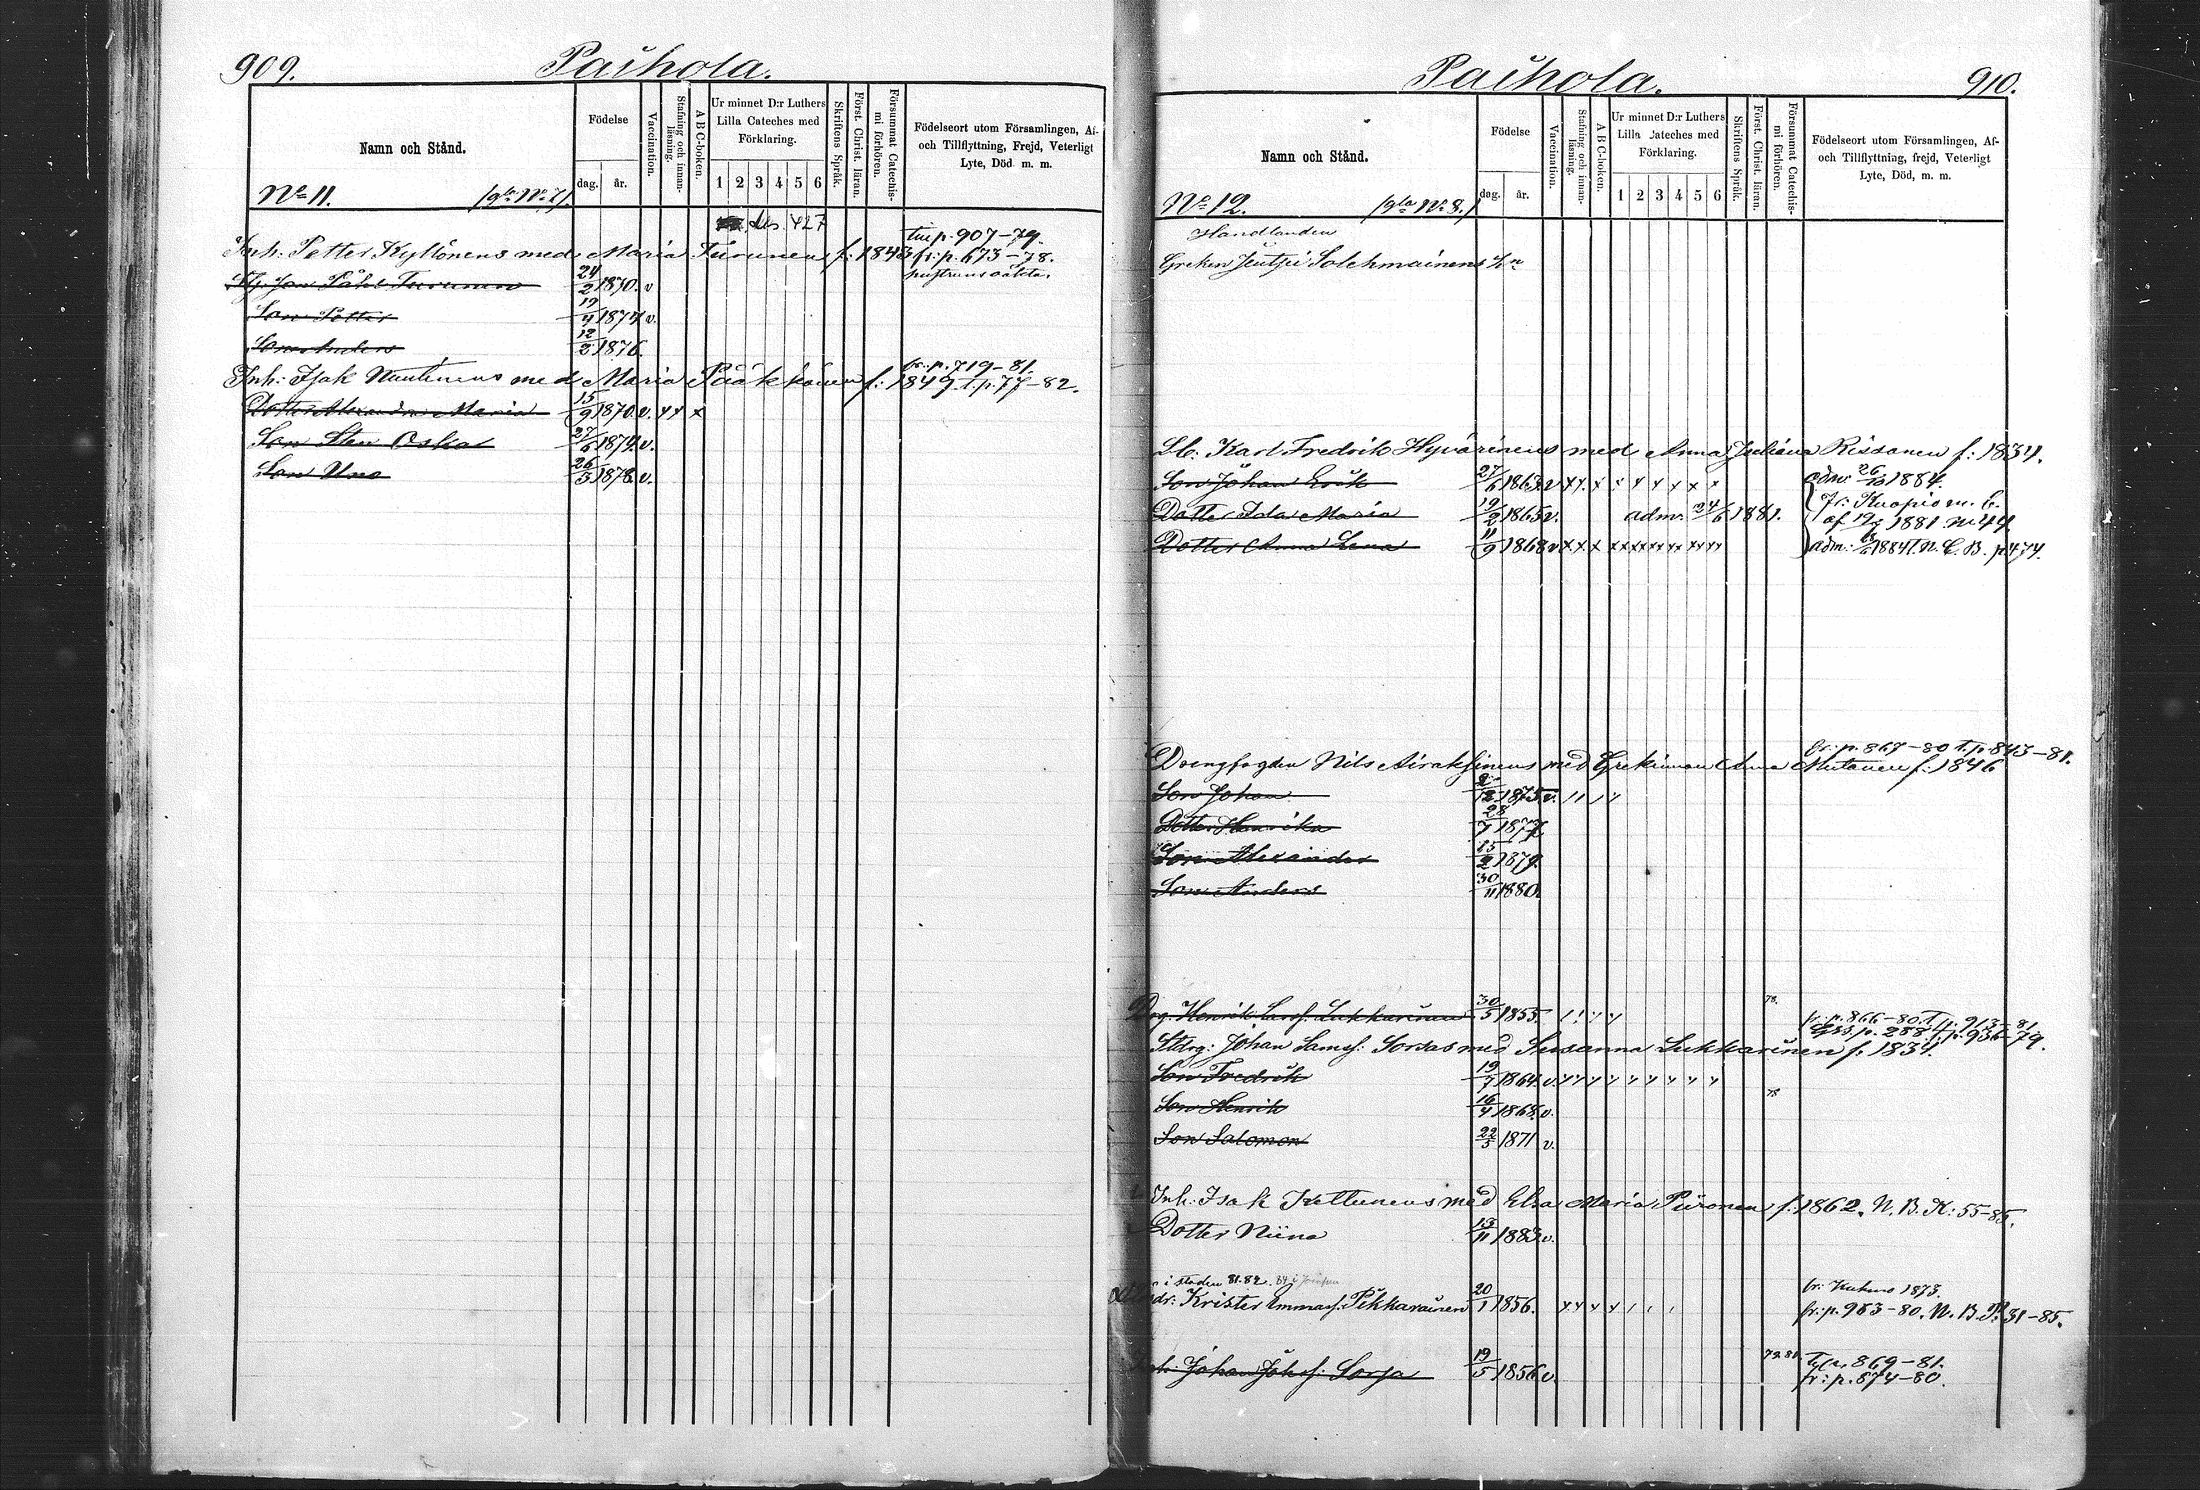 909.
Paihola.
Namn och Stånd.
Födelse
dag.
år.
Vaccination.
Stafning och innanläsning.
A B C-boken.
Ur minnet D:r Luthers
Lilla Cateches med
Förklaring.
1 2 3 4 5 6
Skriftens Språk.
Först. Christ. läran.
Försummat Catechismi förhören.
Födelseort utom Församlingen, Af-
och Tillflyttning, Frejd, Veterligt
Lyte, Död m. m.
No 11. (gla No 7)
427
p. 907-79.
Inh: Petter Kyllönens med Maria Turunen f: 1843 fr: p. 673-78.
Påhl Turunen 24/2 1870. v
Son Petter 19/4 1874 v.
Son Anders 12/2 1876.
fr: p. 719-81.
Inh: Isak Nuutinens med Maria Pääkkönen f: 1849. T. p. 77-82.
Dotter Alexandra Maria 15/9 1870. v. x x x
Son Sten Oskar 27/6 1874. v.
Son Uno 26/3 1878. v.
Paihola.
910.
Namn och Stånd.
Födelse
dag.
år.
Vaccination.
Stafning och innanläsning.
A B C-boken.
Ur minnet D:r Luthers
Lilla Cateches med
Förklaring.
1 2 3 4 5 6
Skriftens Språk.
Först. Christ. läran.
Försummat Catechismi förhören.
Födelseort utom Församlingen, Af-
och Tillflyttning, frejd, Veterligt
Lyte, Död, m. m.
No 12. (gla No 8.)
Handlanden
Greken
Karl Fredrik Hyvärinens med Anna Juliana Rissanen f: 1834.
Son Johan Erik 27/6 1863. v x x x x x x x x x adm 26/10 1884.
Dotter Ida Maria 19/2 1865 v. adm. 24/6 1881. fr: Kuopio
af 19/9 1881. No 44.
Dotter Anna Lena 11/9 1868 v x x x x x x x x x adm: 1884 T. N. C. B. p 474.
fr: p. 867-80 T. p. 843-81.
Drengfogden Nils Airaksinens med Grekinnan Anna Mutanen f: 1846
Son Johan 1875 v.
Dotter Henrika 28/7 1877
Son Alexander 15/2 1879.
Son Anders 30/11 1880.
Drg. Henrik Larss. Lukkarinen 30/5 1855. 78. fr: p. 866-80. T. p. 913-81
p. 288 p. 936-79.
Johan Sorsas med Susanna Lukkarinen f. 1834.
Son Fredrik 19/7 1864. v.
78
Son Henrik 16/4 1868. v.
Son Salomon 22/3 1871 v.
Inh: Isak Kettunens med Elsa Maria Piironen f: 1862. N. B. K: 55-85.
Dotter Niina 13/11 1883. v.
i staden 81.82. 84 i Joensuu
Krister Emmas: Pikkarainen 20/1 1856. x x x x fr: 1873.
fr: p. 983-80. N. B. P. 31-85.
Johan Johss: Sorsa 19/5 1856. v. 79.81. T. p. 869-81.
fr: p. 874-80.